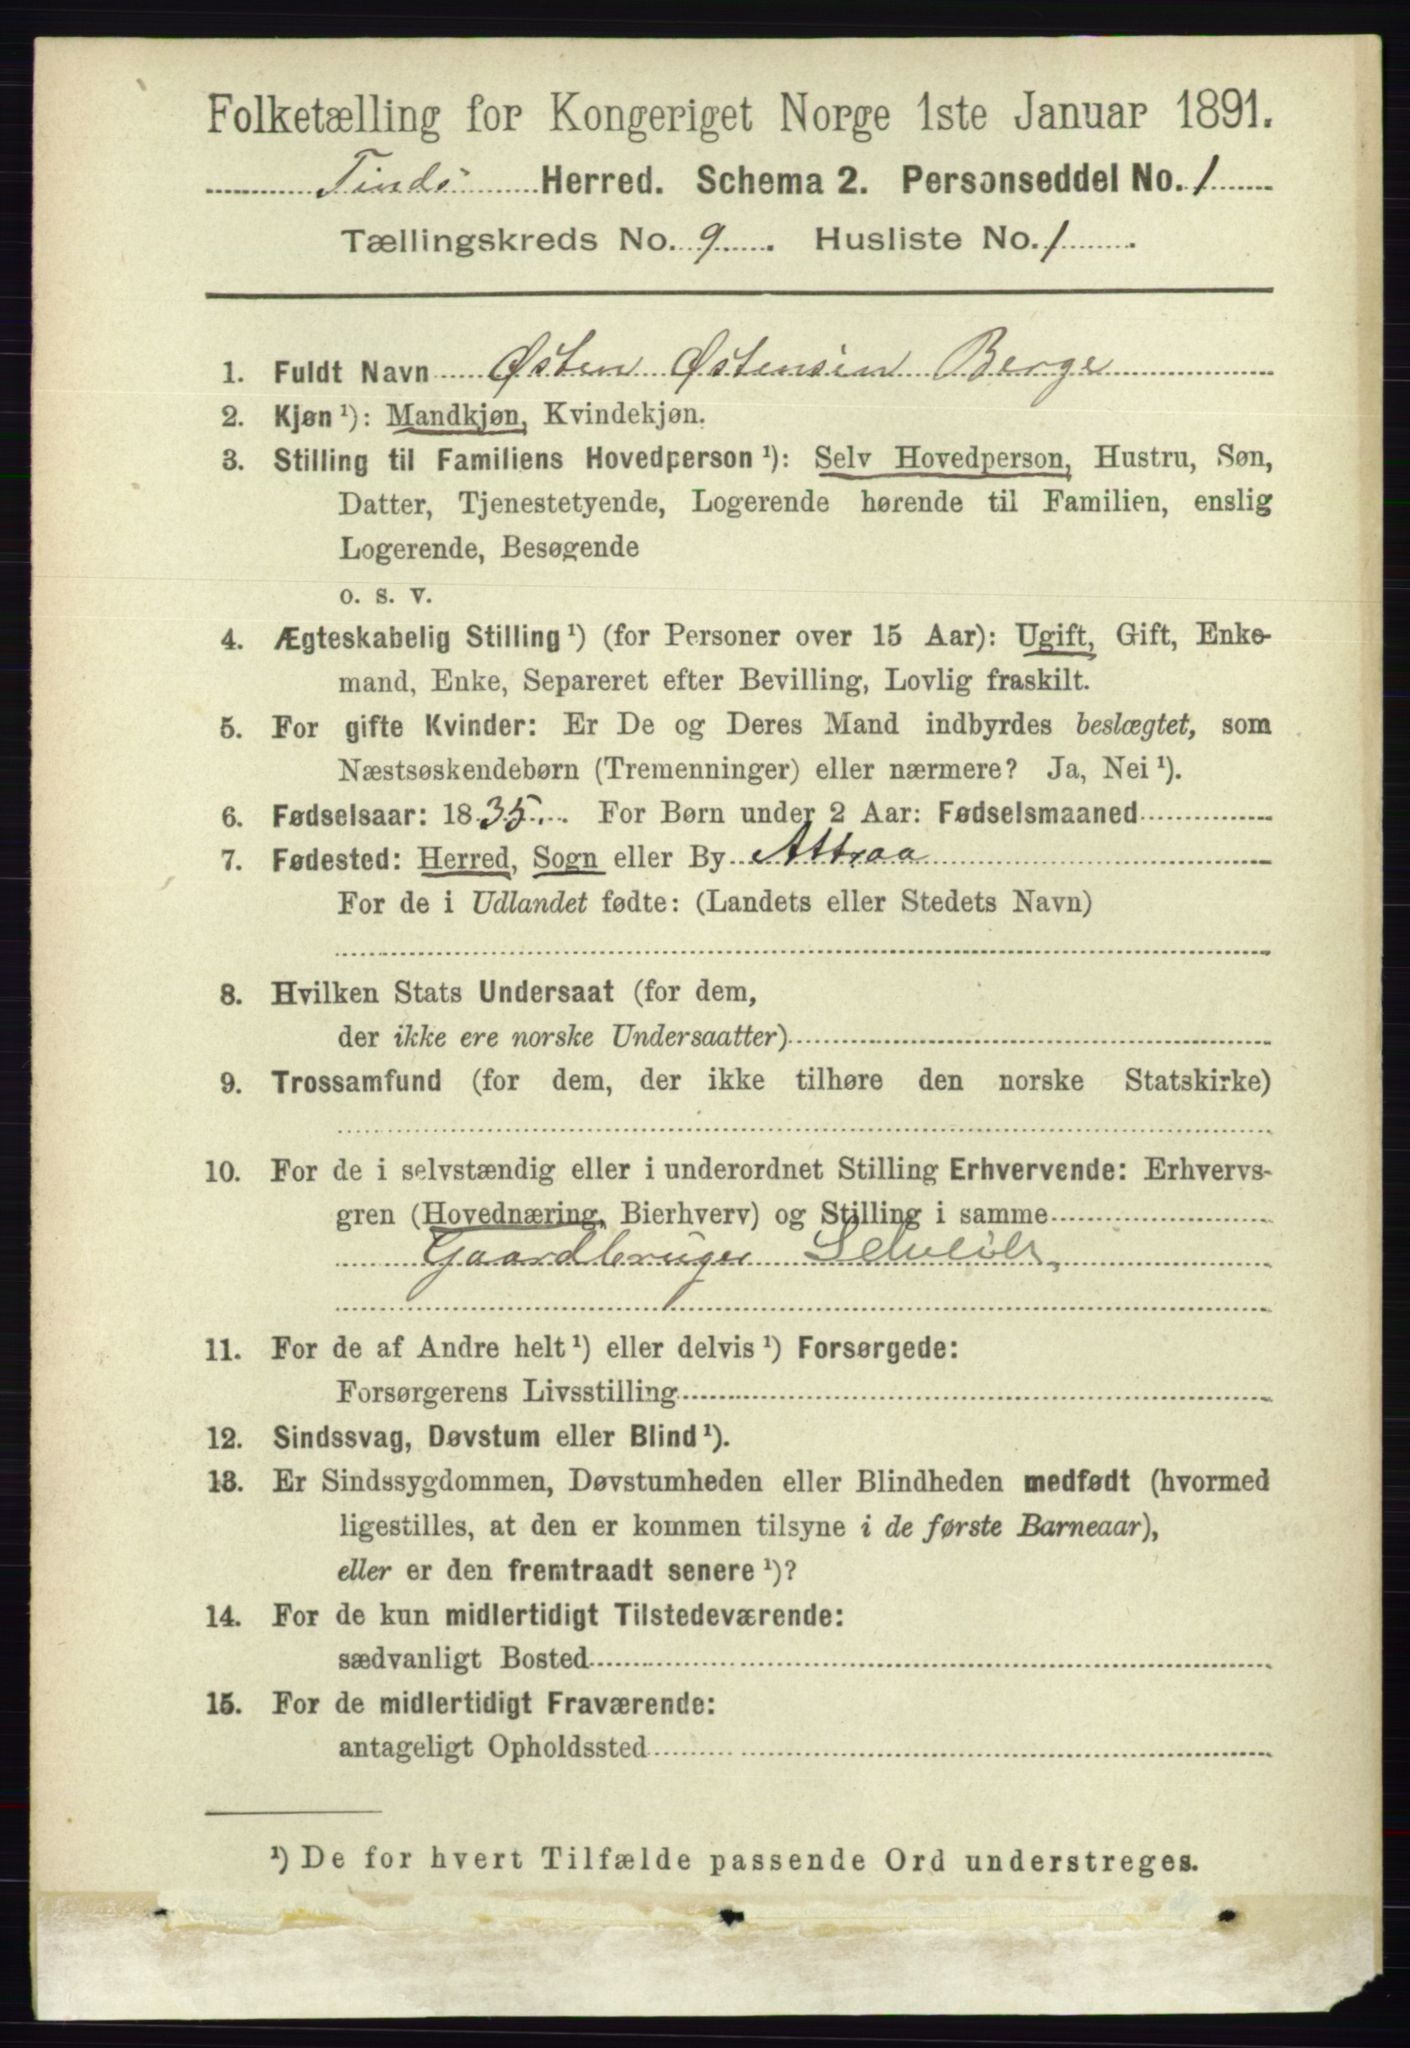 Folketælling for Kongeriget Norge 1ste Januar 1891.
Tinds Herred. Schema 2. Personseddel No. 1
Tællingskreds No. 9. Husliste No. 1.
1. Fuldt Navn Østen Østensen Berge
2. Kjøn ¹): Mandkjøn, Kvindekjøn.
3. Stilling til Familiens Hovedperson ¹): Selv Hovedperson, Hustru, Søn,
Datter, Tjenestetyende, Logerende hørende til Familien, enslig
Logerende, Besøgende
o. s. v.
4. Ægteskabelig Stilling ¹) (for Personer over 15 Aar): Ugift, Gift, Enke-
mand, Enke, Separeret efter Bevilling, Lovlig fraskilt.
5. For gifte Kvinder: Er De og Deres Mand indbyrdes beslægtet, som
Næstsøskendebørn (Tremenninger) eller nærmere? Ja, Nei ¹).
6. Fødselsaar: 1835. For Børn under 2 Aar: Fødselsmaaned
7. Fødested: Herred, Sogn eller By Attraa
For de i Udlandet fødte: (Landets eller Stedets Navn)
8. Hvilken Stats Undersaat (for dem,
der ikke ere norske Undersaatter)
9. Trossamfund (for dem, der ikke tilhøre den norske Statskirke)
10. For de i selvstændig eller i underordnet Stilling Erhvervende: Erhvervs-
gren (Hovednæring, Bierhverv) og Stilling i samme
Gaardbruger Selveier
11. For de af Andre helt ¹) eller delvis ¹) Forsørgede:
Forsørgerens Livsstilling
12. Sindssvag, Døvstum eller Blind ¹).
13. Er Sindssygdommen, Døvstumheden eller Blindheden medfødt (hvormed
ligestilles, at den er kommen tilsyne i de første Barneaar),
eller er den fremtraadt senere ¹)?
14. For de kun midlertidigt Tilstedeværende:
sædvanligt Bosted
15. For de midlertidigt Fraværende:
antageligt Opholdssted
¹) De for hvert Tilfælde passende Ord understreges.